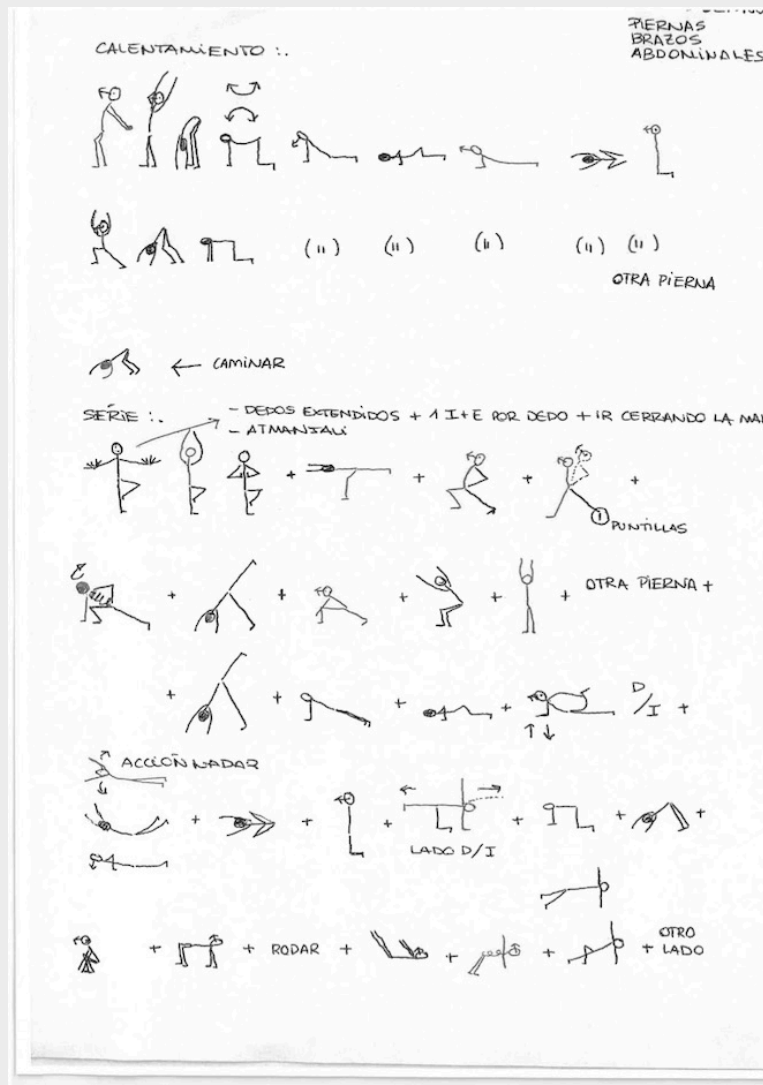 PIERNAS
BRAZOS
ABDOMINALES
CALENTAMIENTO :.
(")  (")  (")  (")  (")
OTRA PIERNA
← CAMINAR
SERIE :.
- DEDOS EXTENDIDOS + 1 I+E POR DEDO + IR CERRANDO LA
- ATMANJALI
+ + + +
PUNTILLAS
+ + + + + OTRA PIERNA +
+ + + + D/I +
ACCIÓN NADAR
+ + + + + +
LADO D/I
+ + RODAR + + + + OTRO LADO